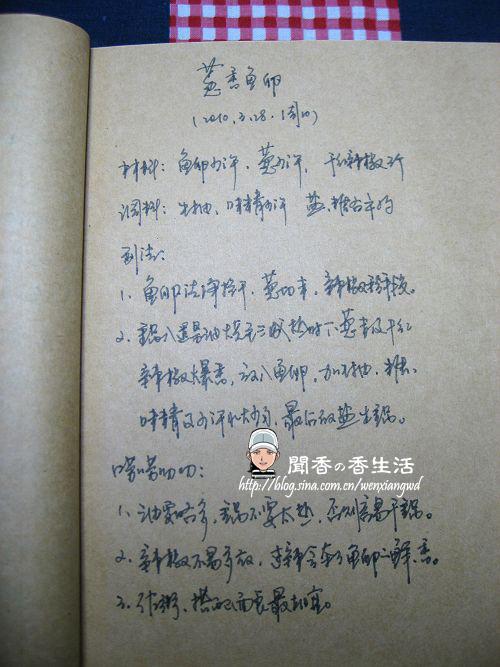 葱香鱼卵
(2010.3.28.1周日)
材料：鱼卵少许、葱少许、干红辣椒2个
调料：生抽、味精少许 盐、糖各半勺
制法：
1、鱼卵洗净控干，葱切末，辣椒切段。
2、锅入适量油烧至三成热时下葱末及干红
辣椒爆香，放入鱼卵，加生抽、糖、
味精及少许水炒匀，最后放盐出锅。
唠唠叨叨：
1、油要略多，锅不要太热，否则容易干锅。
2、辣椒不易多放，过辣会夺了鱼卵的鲜香。
3、作粥、搭配而食最相宜。
聞香の香生活
http://blog.sina.com.cn/wenxiangwd